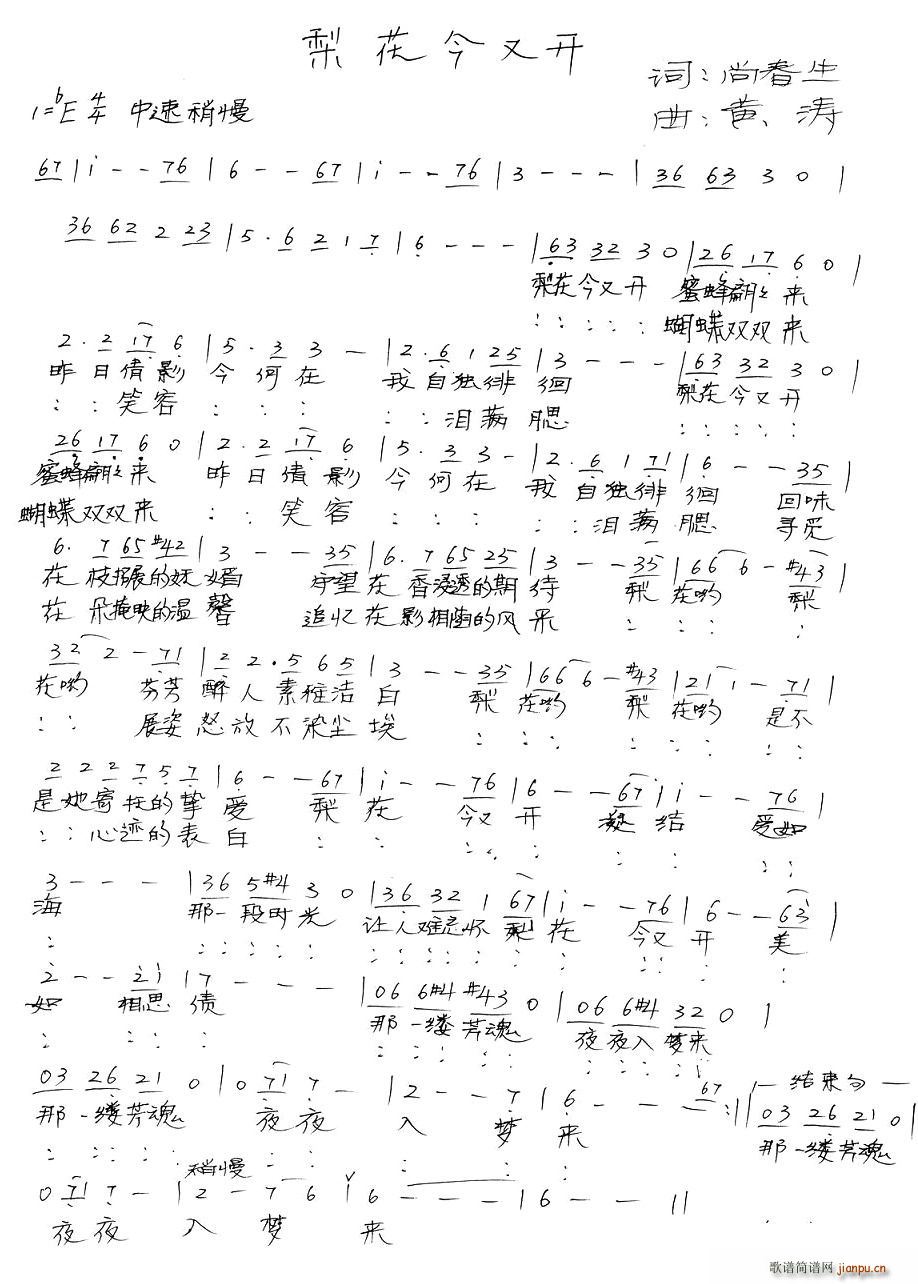 梨花今又开
词：尚春生
1=♭E 4/4 中速稍慢
曲：黄涛
67|i - - 76|6 - - 67|i - - 76|3 - - -|36 63 3 0|
36 62 2 23|5· 6 2 1 7|6 - - -|63 32 3 0|26 17 6 0|
梨花今又开 蜜蜂翩翩来
: : : : : 蝴蝶双双来
2· 2 17 6|5· 3 3 -|2· 6 1 25|3 - - -|63 32 3 0|
昨日倩影 今何在 我自独徘徊 梨花今又开
: : 笑容 : : : : : 泪满腮 : : : : :
26 17 6 0|2· 2 17 6|5· 3 3 -|2· 6 1 71|6 - - 35|
蜜蜂翩翩来 昨日倩影 今何在 我自独徘徊 回味
蝴蝶双双来 : : 笑容 : : : : : : 泪满腮 寻觅
6· 7 65 #42|3 - - 35|6· 7 65 25|3 - - 35|66 6 - #43|
在枝招展的妩媚 守望在香浸透的期待 梨花哟 梨
在朵掩映的温馨 追忆在影相随的风采 : : : :
32 2 - 71|2 2· 5 6 5|3 - - 35|66 6 - #43|21 1 - 71|
花哟 芬芳醉人素雅洁白 梨花哟 梨花哟 是不
: : 展姿怒放不染尘埃 : : : : : : : :
2 2 2 7 5 7|6 - - 67|i - - 76|6 - - 67|i - - 76|
是她寄托的挚爱 梨花 今又开 凝结 爱如
: : 心迹的表白 : : : : : : : : :
3 - - -|36 5#4 3 0|36 32 1 67|i - - 76|6 - - 63|
海 那一段时光 让人难忘怀 梨花 今又开 美
: : : : : : : : : : : : : : : : :
2 - - 2i|7 - - -|06 6#4 #43 0|06 6#4 32 0|
如 相思债 那一缕芳魂 夜夜入梦来
: : : : : : : : : : : : : :
03 26 21 0|0 71 7 -|2 - - 7|6 - - - 67:||结束句 03 26 21 0|
那一缕芳魂 夜夜 入 梦来 那一缕芳魂
: : : : : : : : : :
稍慢
0 71 7 -|2 - 7 6|6 - - -|6 - - ||
夜夜 入 梦 来
歌谱简谱网
jianpu.cn